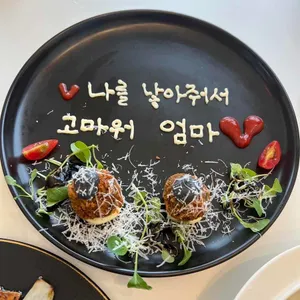 나를 낳아줘서
고마워 엄마